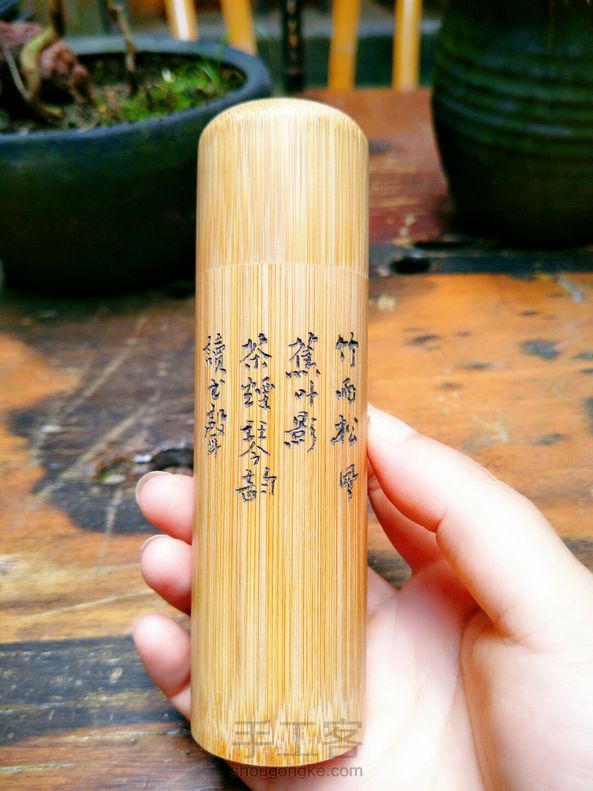 竹雨松風
蕉叶影
茶煙琴韵
讀书聲
手工客
shougongke.com